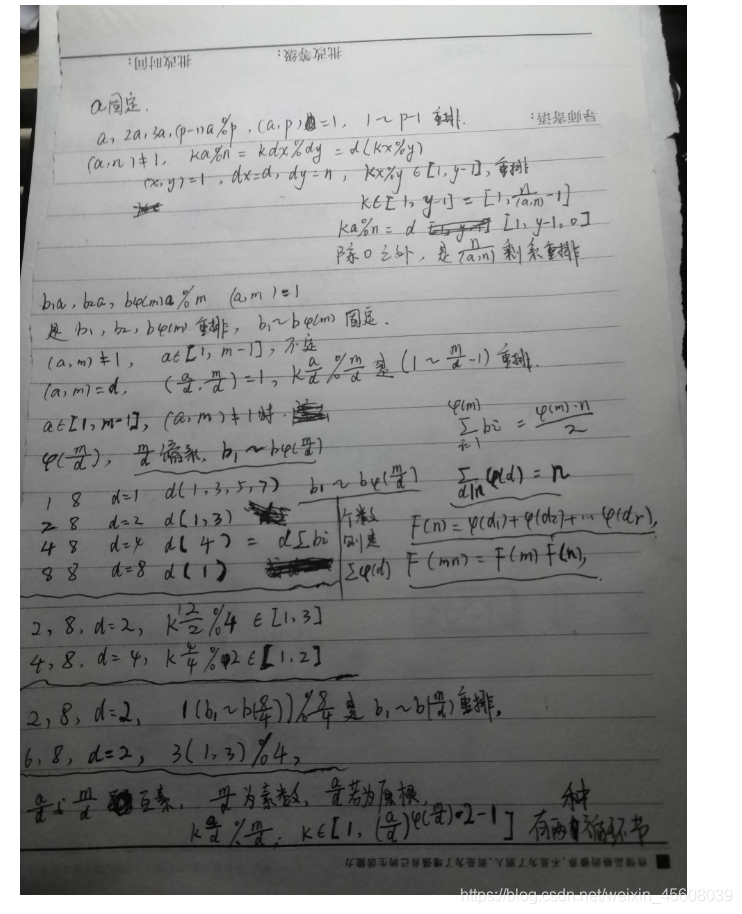 批改时间: 批改等级:
导师寄语:
a固定.
a, 2a, 3a, (p-1)a%p, (a,p)=1, 1~p-1 重排.
(a,n)≠1, ka%n = kdx%dy = d(kx%y)
(x,y)=1, dx=a, dy=n, kx%y∈[1,y-1], 重排
k∈[1, y-1] = [1, n/(a,n) -1]
ka%n = d [1, y-1, 0]
除0之外, 是 n/(a,n) 剩系重排
b₁a, b₂a, bφ(m)a%m (a,m)=1
是 b₁, b₂, bφ(m) 重排, b₁~bφ(m) 固定.
(a,m)≠1, a∈[1, m-1], 不定
(a,m)=d, (a/d, m/d)=1, k a/d % m/d 是 (1~m/d -1) 重排.
a∈[1, m-1], (a,m)≠1时.
φ(m/d), m/d 缩系, b₁~bφ(m/d)
φ(m)∑i=1 bi = φ(m)·n/2
1 8 d=1 d(1,3,5,7) b₁~bφ(m/d)
∑d|n φ(d) = n
2 8 d=2 d(1,3)
4 8 d=4 d(4) = d∑bi
8 8 d=8 d(1)
个数
则是
∑φ(d)
F(n)=φ(d₁)+φ(d₂)+…φ(dr),
F(mn) = F(m) F(n),
2, 8, d=2, k 2/2 %4 ∈[1,3]
4, 8, d=4, k 4/4 %2∈[1,2]
2, 8, d=2, 1(b₁~b(8/4))%8/4 是 b₁~b(m/d) 重排,
6, 8, d=2, 3(1,3)%4,
a/d 与 m/d 互素, m/d 为素数, a/d 若为原根,
k a/d % m/d, k∈[1, (a/d)φ(m/d)·2-1] 有两种循环节
https://blog.csdn.net/weixin_45608039